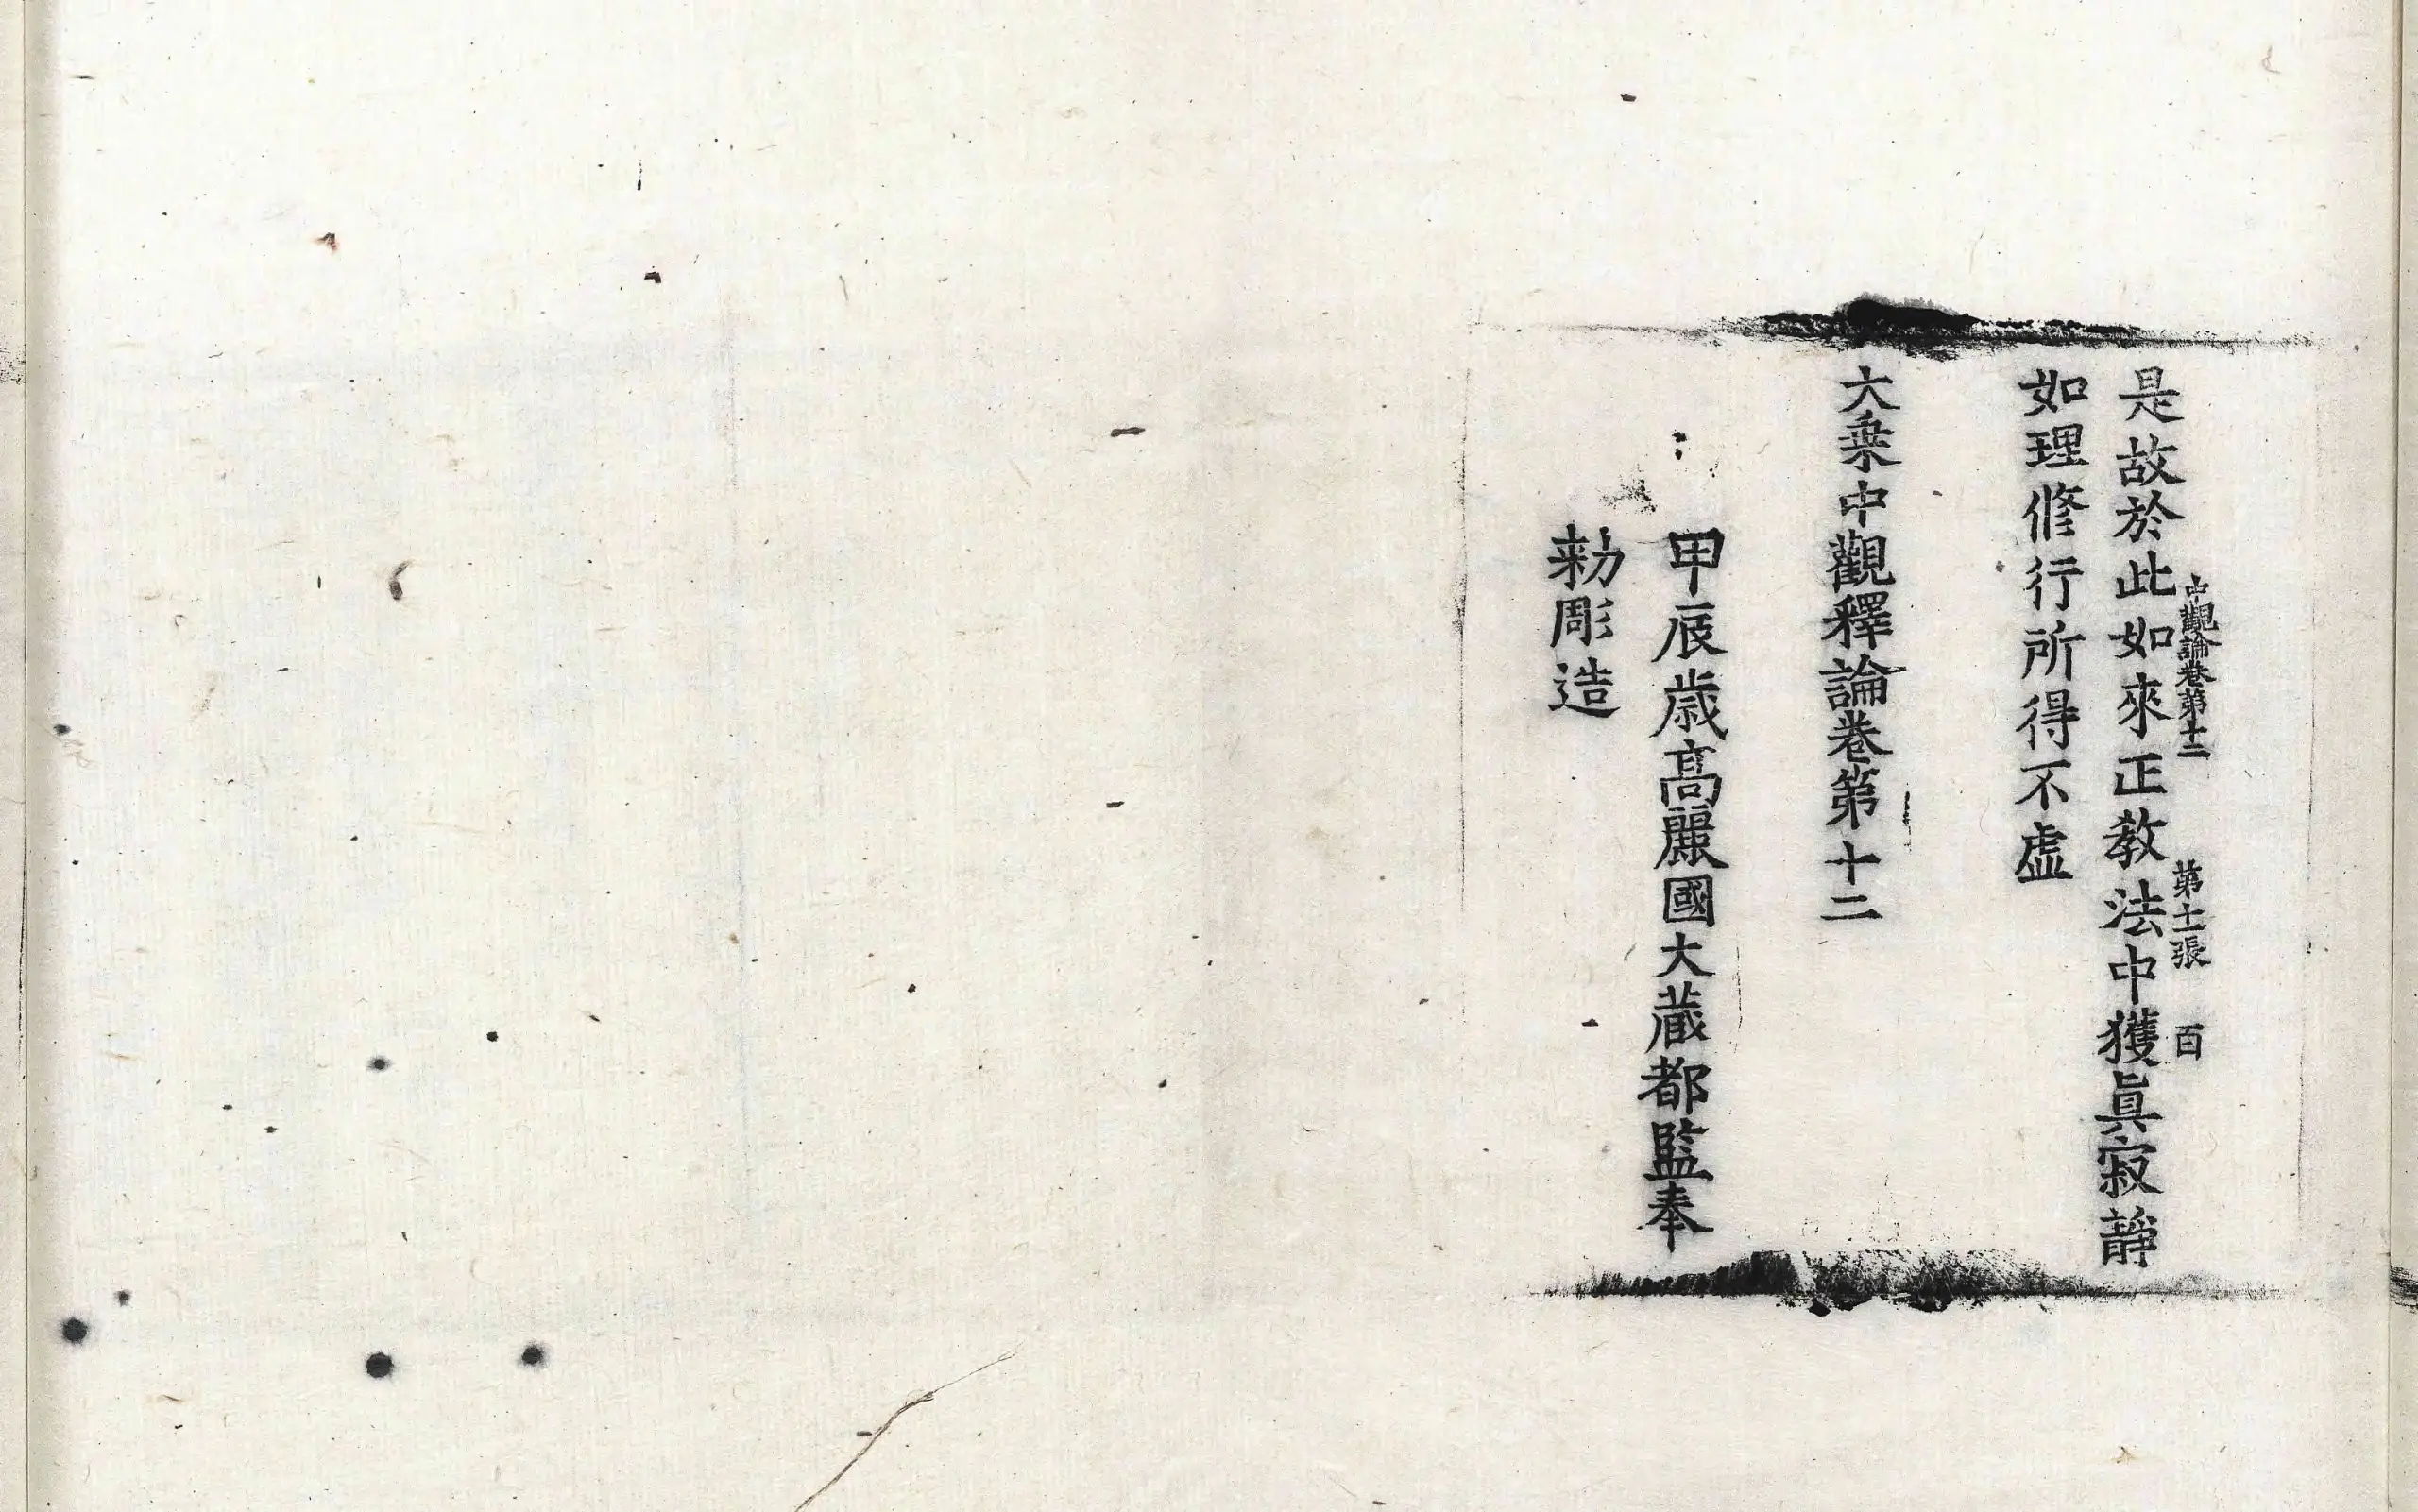 中觀論卷第十二 第十一張 百
是故於此如來正教法中獲眞寂靜
如理修行所得不虛
大乗中觀釋論卷第十二
甲辰歳高麗國大藏都監奉
勑彫造